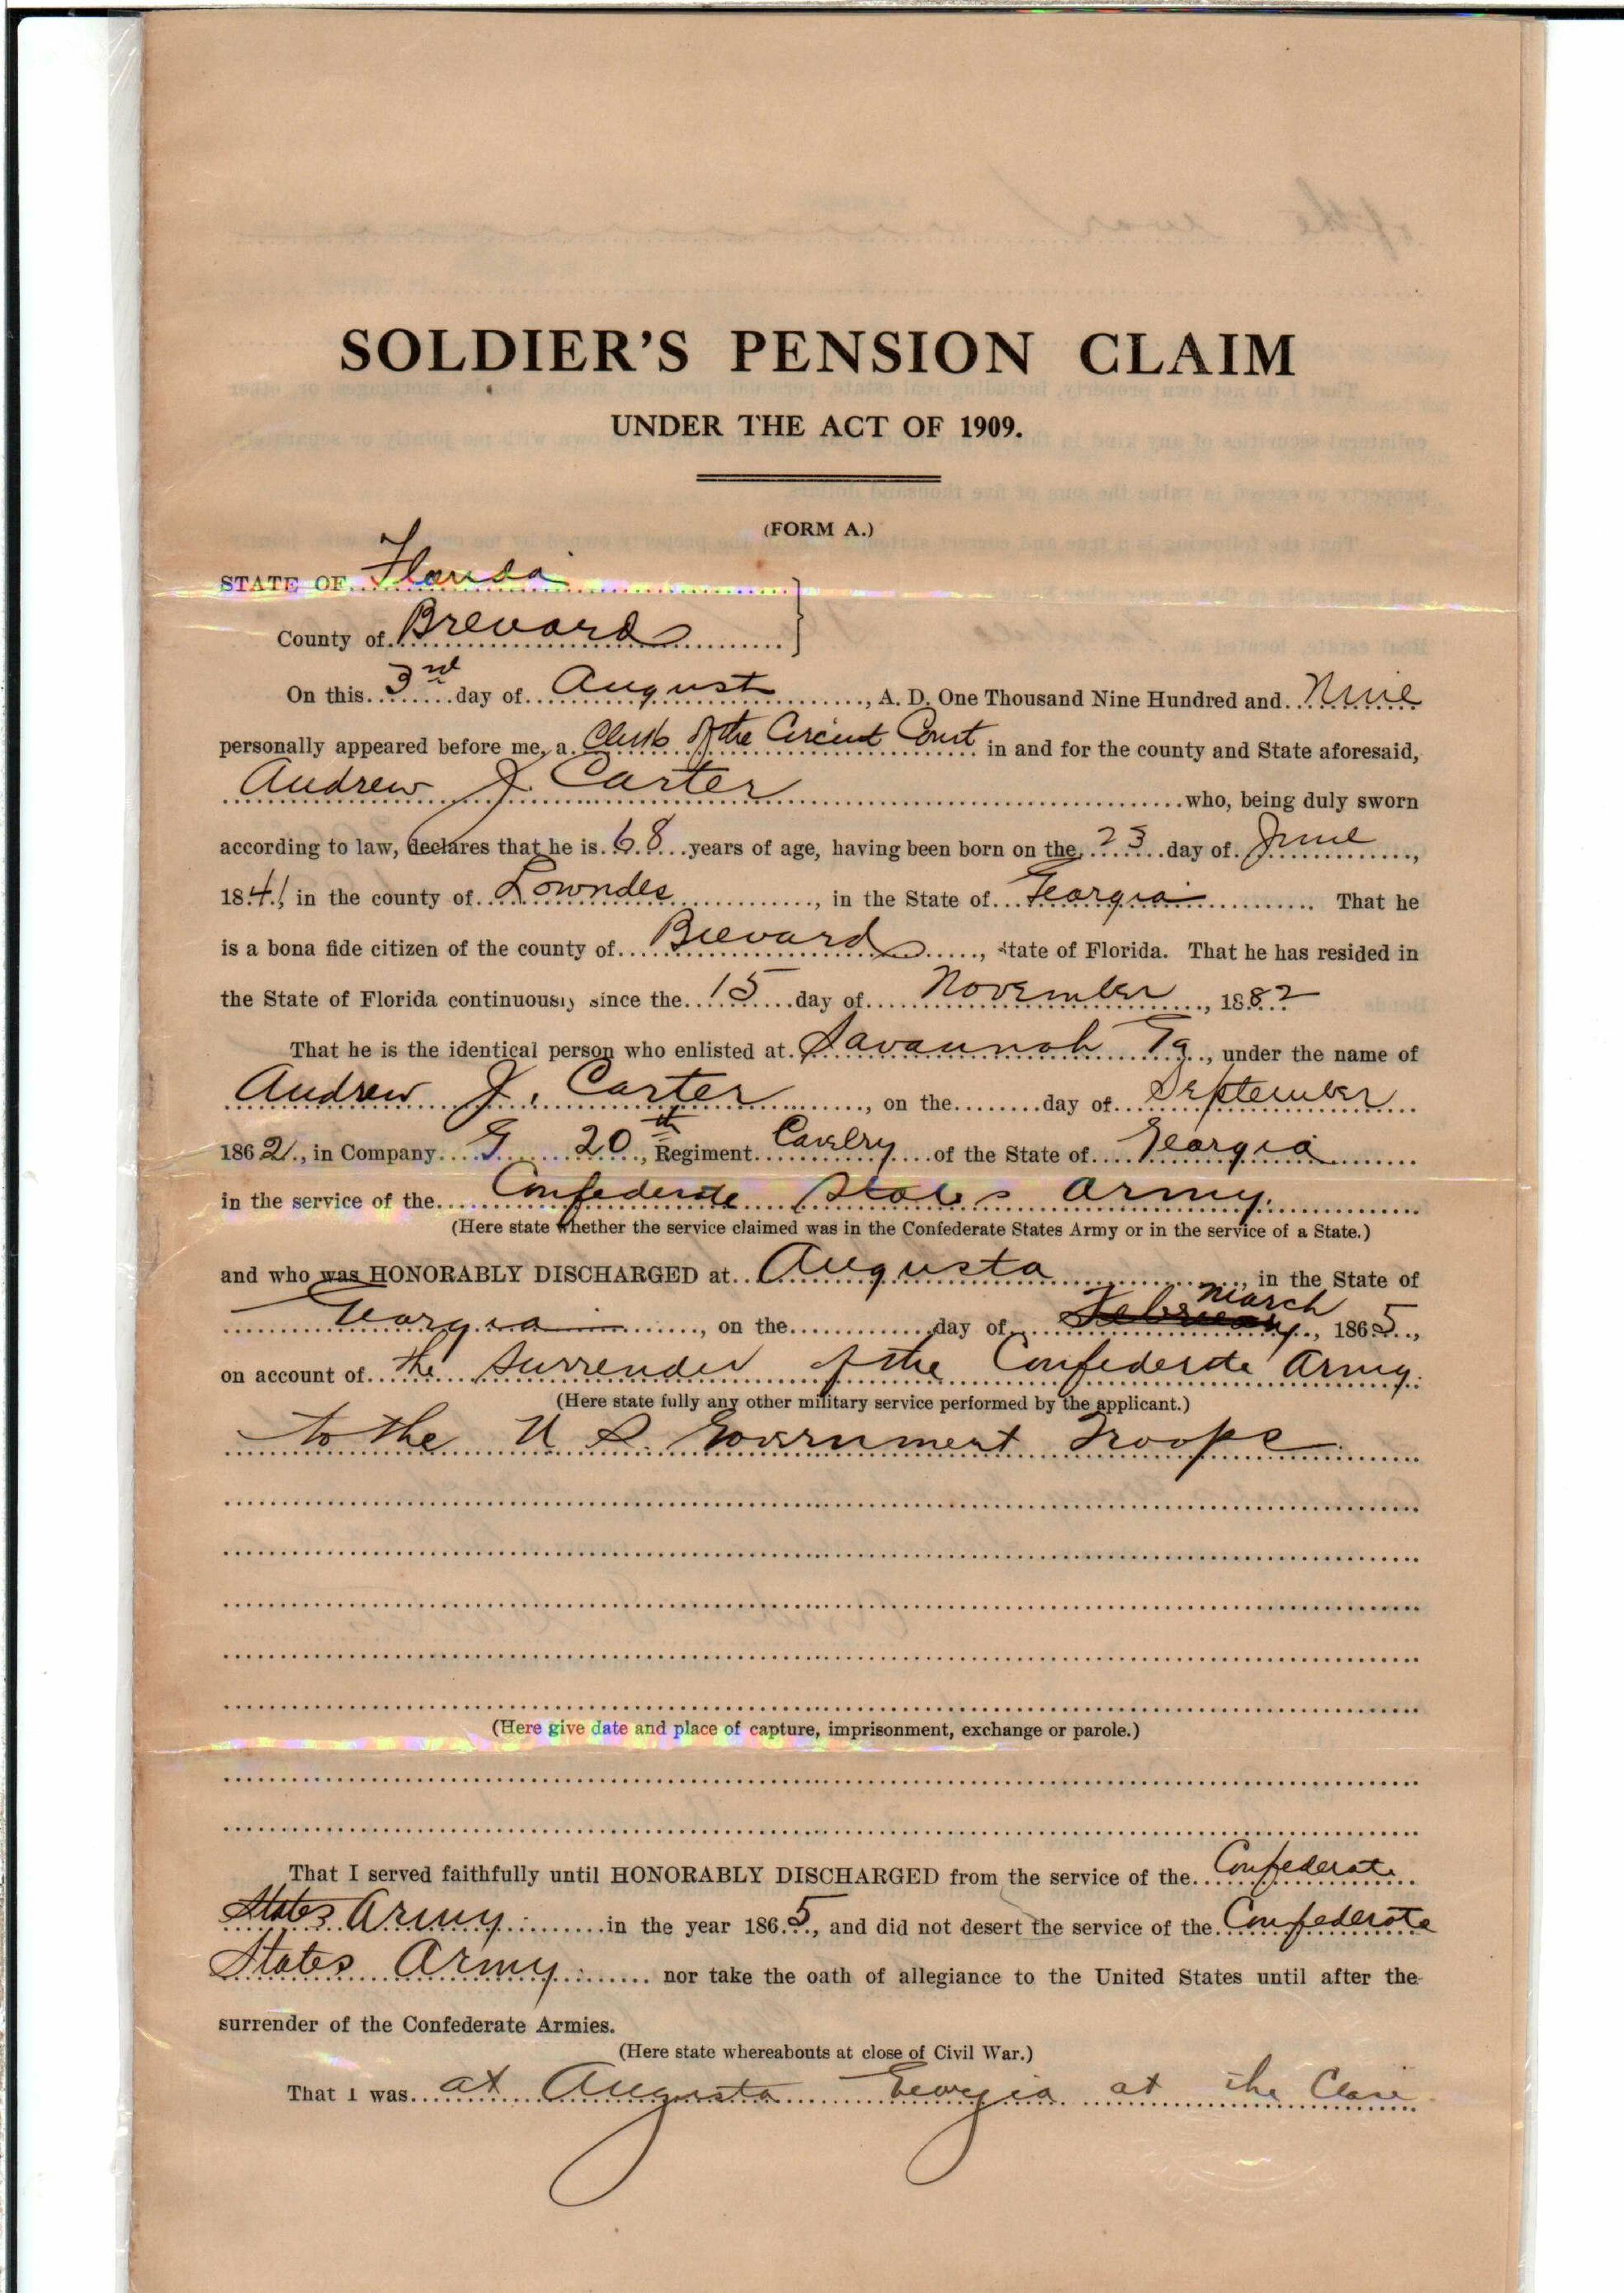 SOLDIER'S PENSION CLAIM
UNDER THE ACT OF 1909.
(FORM A.)
STATE OF Florida
County of Brevard
On this 3rd day of August, A. D. One Thousand Nine Hundred and Nine
personally appeared before me, a Clerk of the Circuit Court in and for the county and State aforesaid,
Andrew J. Carter who, being duly sworn
according to law, declares that he is 68 years of age, having been born on the 23 day of June,
1841, in the county of Lowndes, in the State of Georgia. That he
is a bona fide citizen of the county of Brevard, State of Florida. That he has resided in
the State of Florida continuously since the 15 day of November, 1882
That he is the identical person who enlisted at Savannah Ga., under the name of
Andrew J. Carter, on the day of September
1862, in Company G 20th, Regiment Cavelry of the State of Georgia
in the service of the Confederate States Army.
(Here state whether the service claimed was in the Confederate States Army or in the service of a State.)
and who was HONORABLY DISCHARGED at Augusta, in the State of
Georgia, on the day of February March, 1865,
on account of the Surrender of the Confederate Army
(Here state fully any other military service performed by the applicant.)
to the U S. Government Troops
(Here give date and place of capture, imprisonment, exchange or parole.)
That I served faithfully until HONORABLY DISCHARGED from the service of the Confederate
States Army in the year 1865, and did not desert the service of the Confederate
States Army nor take the oath of allegiance to the United States until after the
surrender of the Confederate Armies.
(Here state whereabouts at close of Civil War.)
That I was at Augusta Georgia at the Close